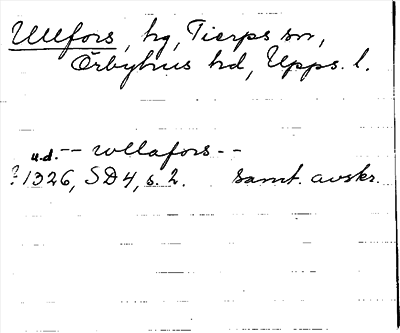 Ullfors, hg, Tierps sn,
Örbyhus hd, Upps. l.
u.d. -- wllafors --
? 1326, SD 4, s. 2. samt. avskr.